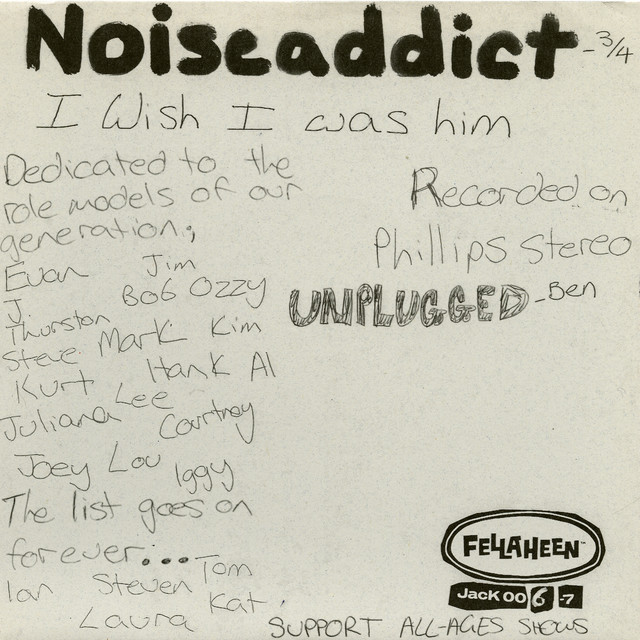 Noiseaddict -3/4
I Wish I was him
Dedicated to the
role models of our
generation;
Evan Jim
J. Bob Ozzy
Thurston Mark Kim
Steve Hank Al
Kurt Lee
Juliana Courtney
Joey Lou Iggy
The list goes on
forever.... Tom
Ian Steven Kat,
Laura
Recorded on
Phillips stereo
UNPLUGGED -Ben
FELLAHEEN
Jack 00 6 -7
SUPPORT ALL-AGES SHOWS